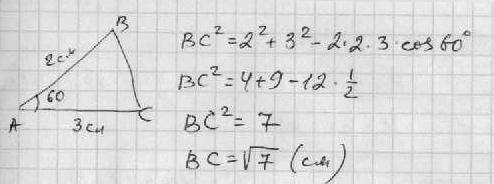 B
2см
60
A
3см
C
BC²=2²+3²-2·2·3·cos60°
BC²=4+9-12·½
BC²=7
BC=√7 (см)